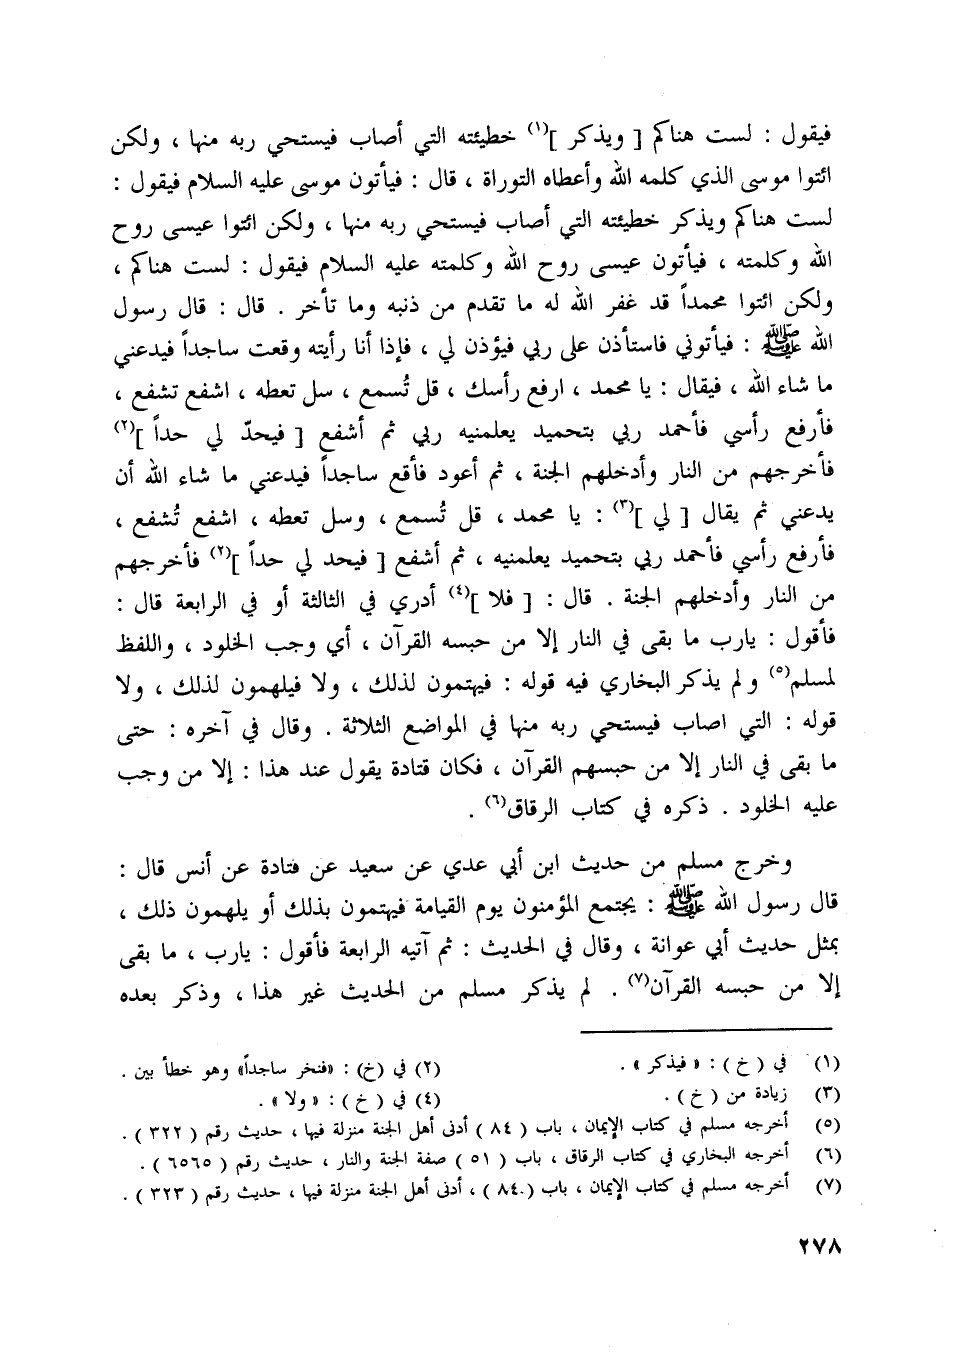 فيقول : لست هناكم [ ويذكر ](١) خطيئته التي أصاب فيستحي ربه منها ، ولكن
ائتوا موسى الذي كلمه الله وأعطاه التوراة ، قال : فيأتون موسى عليه السلام فيقول :
لست هناكم ويذكر خطيئته التي أصاب فيستحي ربه منها ، ولكن ائتوا عيسى روح
الله وكلمته ، فيأتون عيسى روح الله وكلمته عليه السلام فيقول : لست هناكم ،
ولكن ائتوا محمداً قد غفر الله له ما تقدم من ذنبه وما تأخر . قال : قال رسول
الله ﷺ : فيأتوني فاستأذن على ربي فيؤذن لي ، فإذا أنا رأيته وقعت ساجداً فيدعني
ما شاء الله ، فيقال : يا محمد ، ارفع رأسك ، قل تُسمع ، سل تعطه ، اشفع تشفع ،
فأرفع رأسي فأحمد ربي بتحميد يعلمنيه ربي ثم أشفع [ فيحدّ لي حداً ](٢)
فأخرجهم من النار وأدخلهم الجنة ، ثم أعود فأقع ساجداً فيدعني ما شاء الله أن
يدعني ثم يقال [ لي ](٣) : يا محمد ، قل تُسمع ، وسل تعطه ، اشفع تُشفع ،
فأرفع رأسي فأحمد ربي بتحميد يعلمنيه ، ثم أشفع [ فيحد لي حداً ](٢) فأخرجهم
من النار وأدخلهم الجنة . قال : [ فلا ](٤) أدري في الثالثة أو في الرابعة قال :
فأقول : يارب ما بقى في النار إلا من حبسه القرآن ، أي وجب الخلود ، واللفظ
لمسلم(٥) ولم يذكر البخاري فيه قوله : فيهتمون لذلك ، ولا فيلهمون لذلك ، ولا
قوله : التي اصاب فيستحي ربه منها في المواضع الثلاثة . وقال في آخره : حتى
ما بقى في النار إلا من حبسهم القرآن ، فكان قتادة يقول عند هذا : إلا من وجب
عليه الخلود . ذكره في كتاب الرقاق(٦) .
وخرج مسلم من حديث ابن أبي عدي عن سعيد عن قتادة عن أنس قال :
قال رسول الله ﷺ : يجتمع المؤمنون يوم القيامة فيهتمون بذلك أو يلهمون ذلك ،
بمثل حديث أبي عوانة ، وقال في الحديث : ثم آتيه الرابعة فأقول : يارب ، ما بقى
إلا من حبسه القرآن(٧) . لم يذكر مسلم من الحديث غير هذا ، وذكر بعده
(١) في ( خ ) : « فيذكر » .
(٢) في (خ) : «فنخر ساجداً» وهو خطأ بين .
(٣) زيادة من ( خ ) .
(٤) في ( خ ) : « ولا » .
(٥) أخرجه مسلم في كتاب الإيمان ، باب ( ٨٤ ) أدنى أهل الجنة منزلة فيها ، حديث رقم ( ٣٢٢ ) .
(٦) أخرجه البخاري في كتاب الرقاق ، باب ( ٥١ ) صفة الجنة والنار ، حديث رقم ( ٦٥٦٥ ) .
(٧) أخرجه مسلم في كتاب الإيمان ، باب ( ٨٤ ) ، أدنى أهل الجنة منزلة فيها ، حديث رقم ( ٣٢٣ ) .
٢٧٨